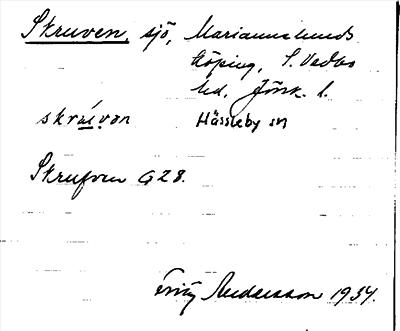 Skruven, sjö, Mariannelunds
köping, S. Vedbo
hd, Jönk. l.
skruvən Hässleby sn
Skrufven G28.
Andersson 1934.